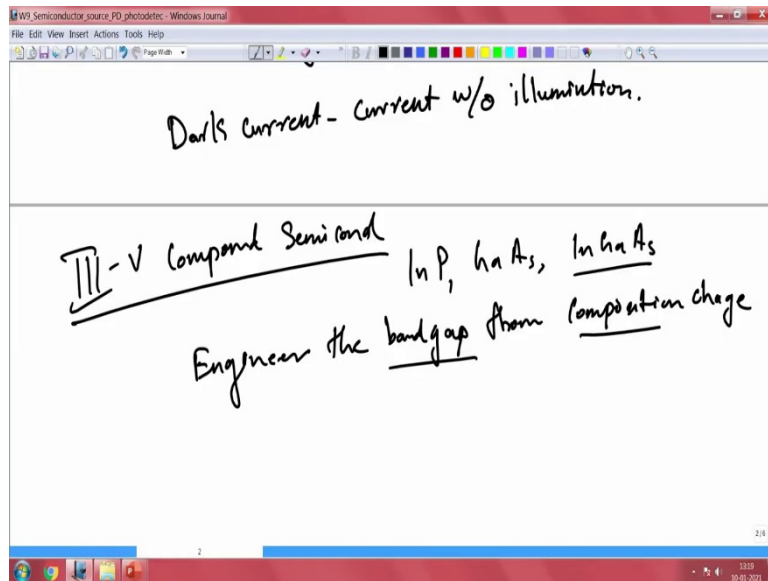 W9_Semiconductor_source_PD_photodetec - Windows Journal
File Edit View Insert Actions Tools Help
Page Width
B I
Dark current - current w/o illumintion.
III-V Compound Semicond InP, GaAs, InGaAs
Engineer the bandgap from composition chage
2/6
2
13:19
10-01-2021